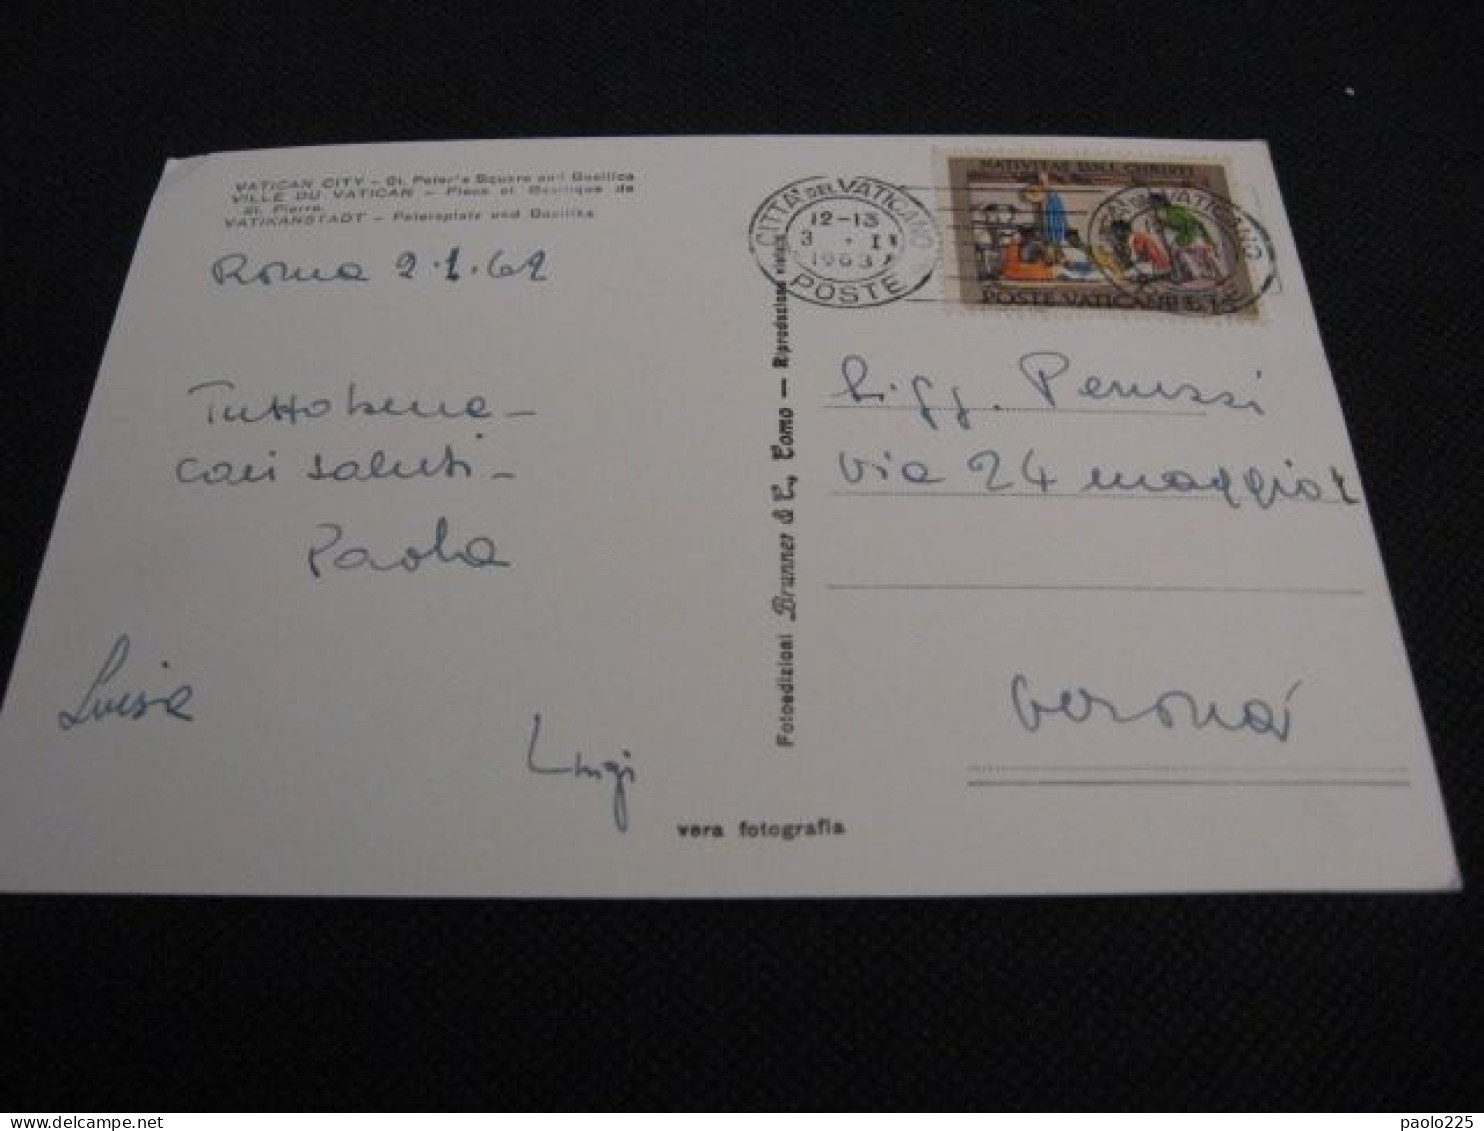 VATICAN CITY - St. Peter's Square and Basilica
VILLE DU VATICAN - Place et Basilique de
St. Pierre.
VATIKANSTADT - Petersplatz und Basilika
Roma 2.1.62
Tutto bene -
cari saluti -
Paola
Luisa
Luigi
Fotoedizioni Brunner & C., Como - Riproduzione vietata
vera fotografia
CITTA' DEL VATICANO
12-13
3 . I
1963
POSTE
NATIVITAS D.N.I. CHRISTI
POSTE VATICANE
VATICANO
Sigg. Peruzzi
via 24 maggio
Verona
paolo225